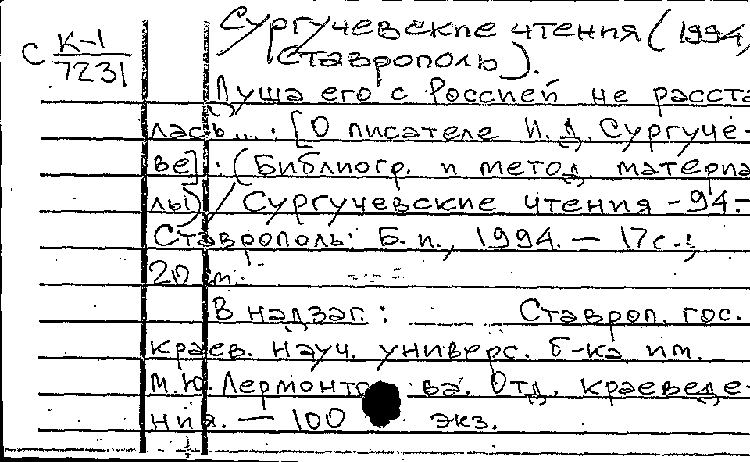 Сургучевские чтения (1994,
С К-1 Ставрополь).
7231
Душа его с Россией не расста-
лась... : [О писателе И. Д. Сургуче-
ве] : (Библиогр. и метод. материа-
лы) / Сургучевские чтения - 94. -
Ставрополь: Б. и., 1994. - 17 с.;
20 см.
В надзаг.: Ставроп. гос.
краев. науч. универс. б-ка им.
М.Ю. Лермонтова. Отд. краеведе-
ния. - 100 экз.